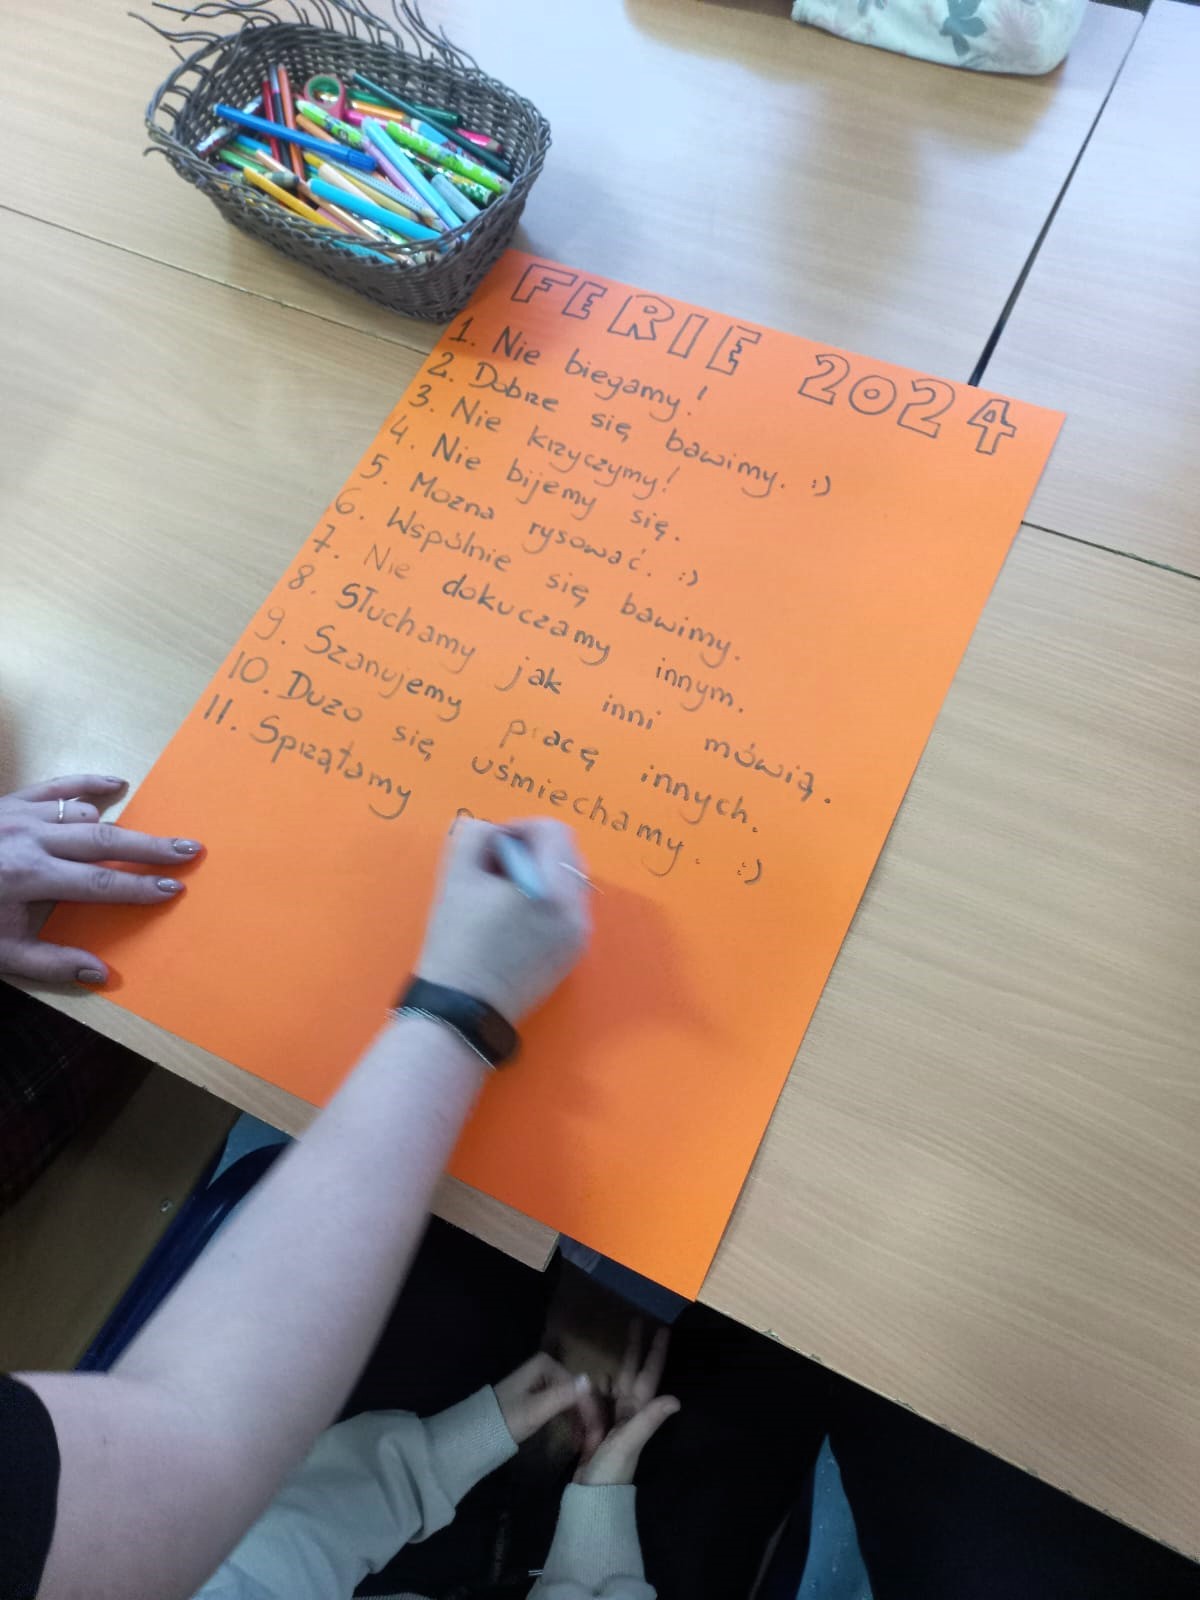 FERIE 2024
1. Nie biegamy!
2. Dobrze się bawimy. :)
3. Nie krzyczymy!
4. Nie bijemy się.
5. Można rysować. :)
6. Wspólnie się bawimy.
7. Nie dokuczamy innym.
8. Słuchamy jak inni mówią.
9. Szanujemy pracę innych.
10. Dużo się uśmiechamy. :)
11. Sprzątamy